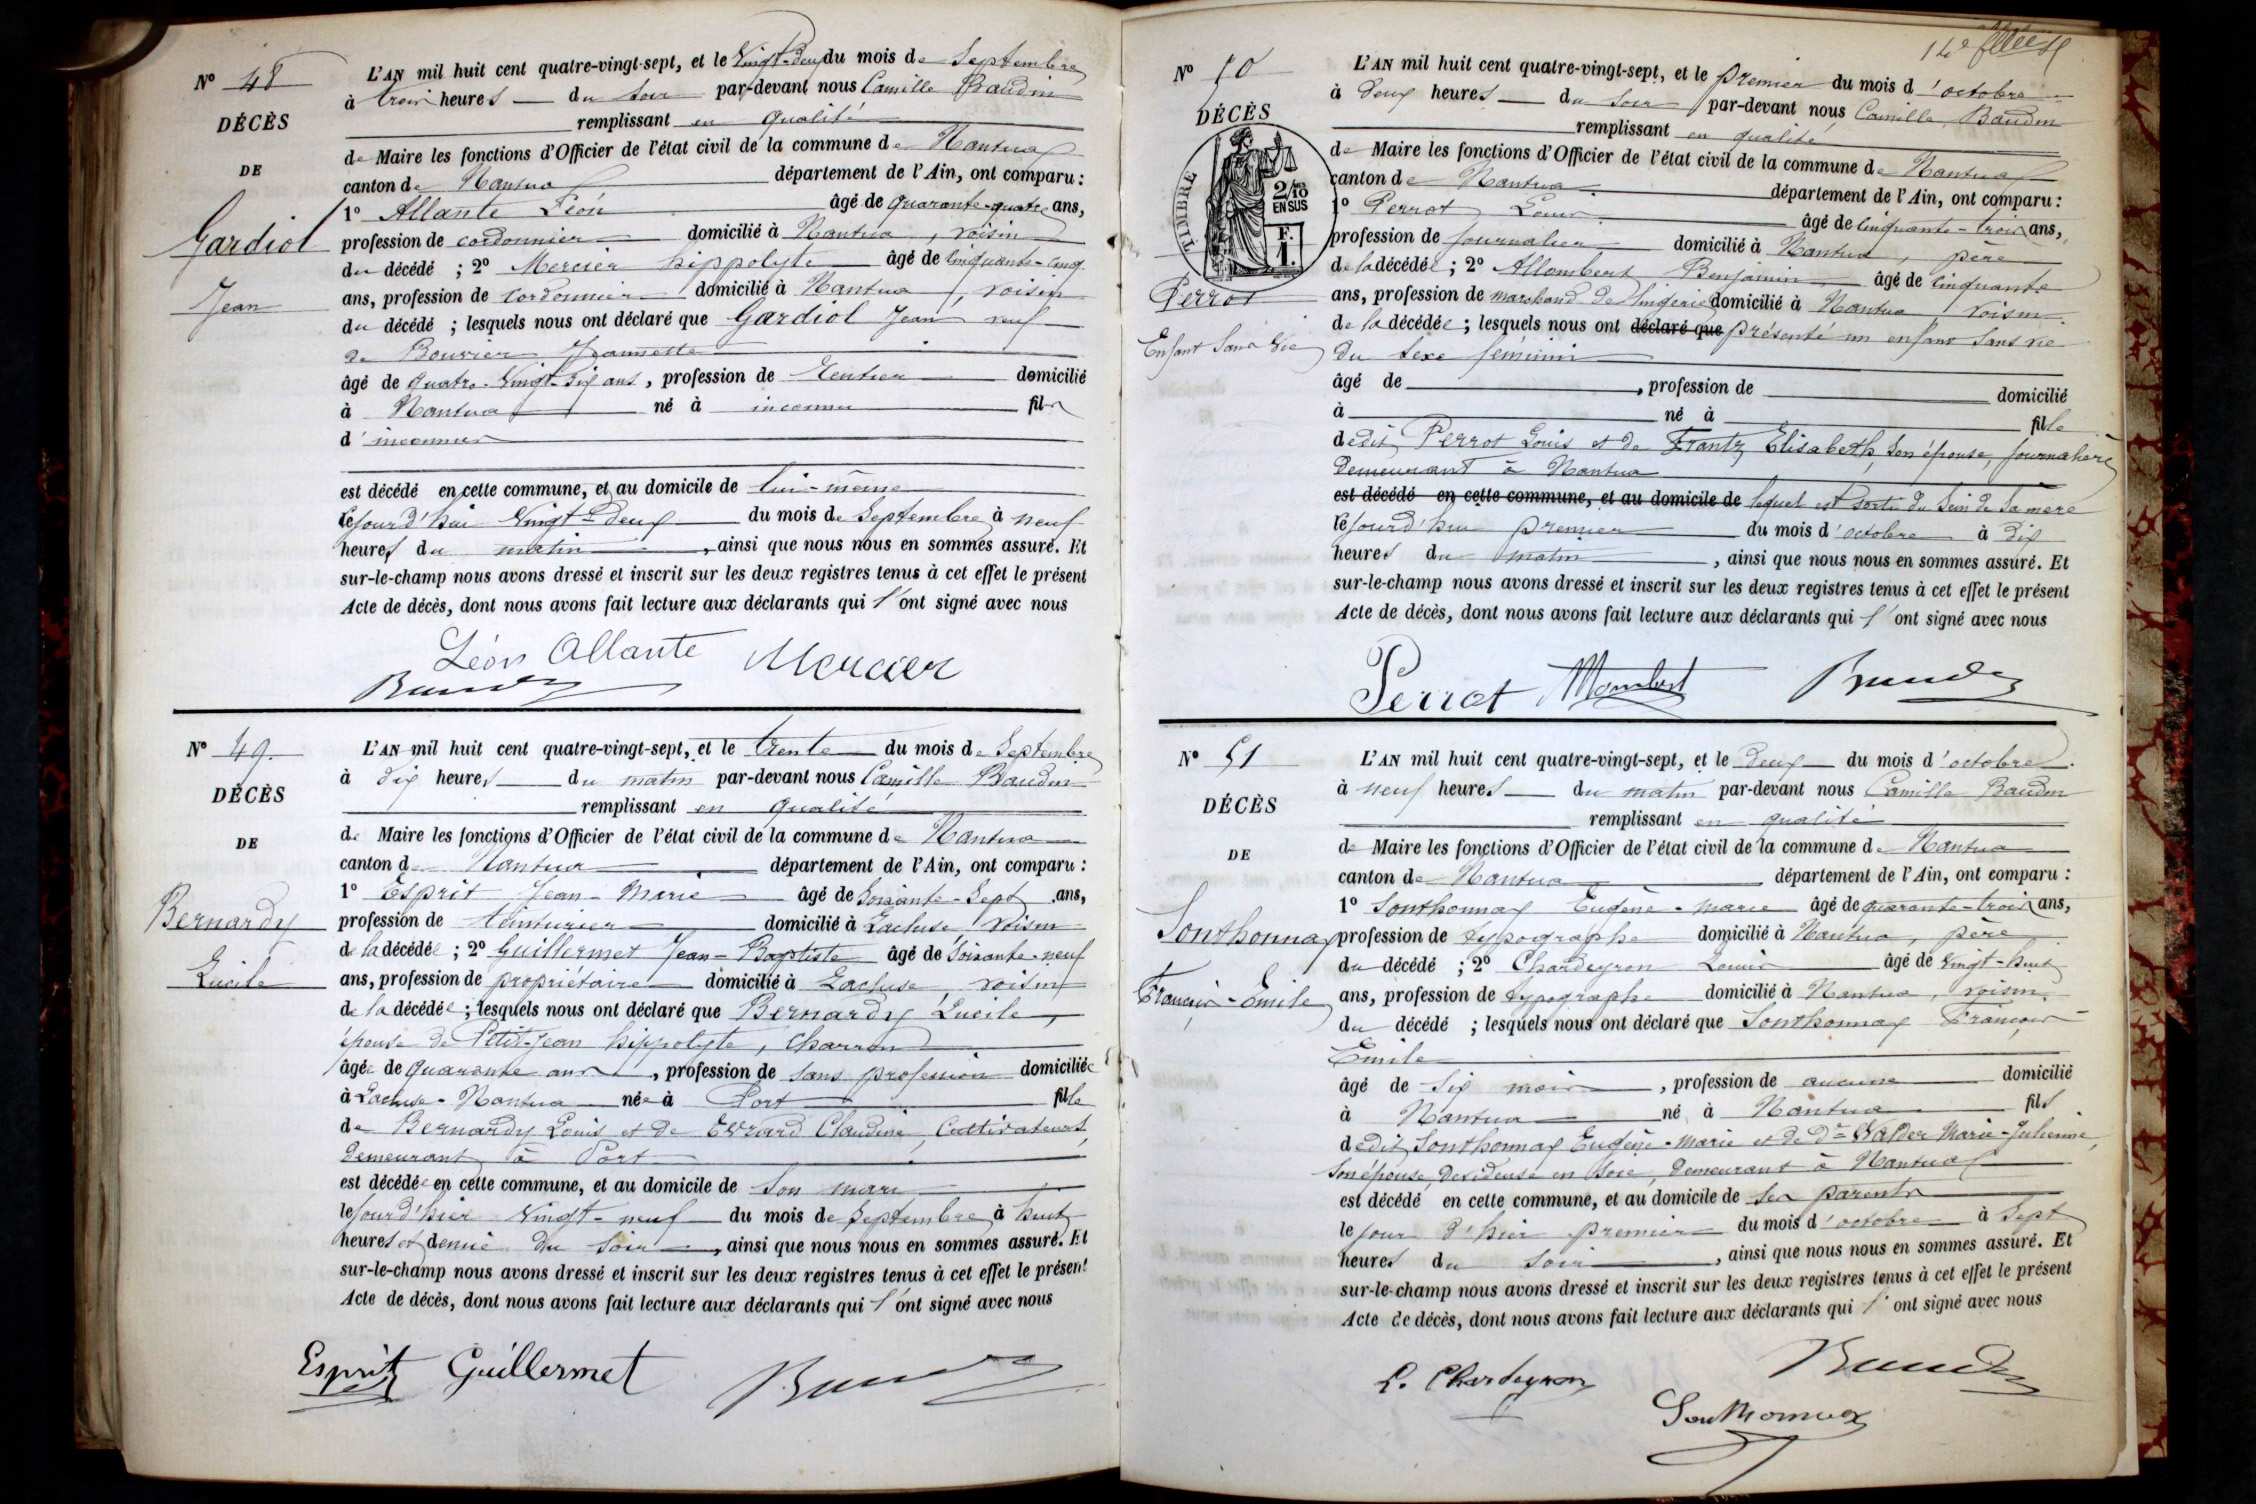 N° 48
DÉCÈS
DE
Gardiol
Jean
L'AN mil huit cent quatre-vingt-sept, et le Vingt-deux du mois de Septembre
à trois heures du soir par-devant nous Camille Baudin
remplissant en qualité
de Maire les fonctions d'Officier de l'état civil de la commune de Nantua
canton de Nantua département de l'Ain, ont comparu :
1° Allante Léon âgé de quarante-quatre ans,
profession de cordonnier domicilié à Nantua, voisin
du décédé ; 2° Mercier hippolyte âgé de cinquante-cinq
ans, profession de cordonnier domicilié à Nantua, voisin
du décédé ; lesquels nous ont déclaré que Gardiol Jean veuf
de Bouvier Jeannette
âgé de quatre-Vingt-six ans, profession de Rentier domicilié
à Nantua né à inconnu fils
d'inconnus
est décédé en cette commune, et au domicile de lui-même
le jourd'hui Vingt-deux du mois de Septembre à neuf
heures du matin, ainsi que nous nous en sommes assuré. Et
sur-le-champ nous avons dressé et inscrit sur les deux registres tenus à cet effet le présent
Acte de décès, dont nous avons fait lecture aux déclarants qui l'ont signé avec nous
Léon Allante Mercier
Baudin
N° 49.
DÉCÈS
DE
Bernardy
Lucile
L'AN mil huit cent quatre-vingt-sept, et le trente du mois de Septembre
à dix heures du matin par-devant nous Camille Baudin
remplissant en qualité
de Maire les fonctions d'Officier de l'état civil de la commune de Nantua
canton de Nantua département de l'Ain, ont comparu :
1° Esprit Jean-Marie âgé de Soixante-Sept ans,
profession de teinturier domicilié à Lacluse voisin
de la décédée ; 2° Guillermet Jean-Baptiste âgé de Soixante-neuf
ans, profession de propriétaire domicilié à Lacluse, voisin
de la décédée ; lesquels nous ont déclaré que Bernardy Lucile,
épouse de Petit-Jean hippolyte, charron
âgée de quarante ans, profession de sans profession domiciliée
à Lacluse-Nantua née à Port fille
de Bernardy Louis et de Evrard Claudine, Cultivateurs
demeurant à Port
est décédée en cette commune, et au domicile de son mari
le jour d'hier Vingt-neuf du mois de Septembre à huit
heures et demie du soir, ainsi que nous nous en sommes assuré. Et
sur-le-champ nous avons dressé et inscrit sur les deux registres tenus à cet effet le présent
Acte de décès, dont nous avons fait lecture aux déclarants qui l'ont signé avec nous
Esprit Guillermet Baudin
N° 50
DÉCÈS
TIMBRE
2/10 EN SUS
F. 1.
Perrot
Enfant Sans Vie
L'AN mil huit cent quatre-vingt-sept, et le premier du mois d'octobre
à deux heures du soir par-devant nous Camille Baudin
remplissant en qualité
de Maire les fonctions d'Officier de l'état civil de la commune de Nantua
canton de Nantua département de l'Ain, ont comparu :
1° Perrot Louis âgé de cinquante-trois ans,
profession de journalier domicilié à Nantua, père
de la décédée ; 2° Allombert Benjamin âgé de cinquante
ans, profession de marchand de lingerie domicilié à Nantua voisin
de la décédée ; lesquels nous ont déclaré que présenté un enfant sans vie
du sexe féminin
âgé de , profession de domicilié
à né à fille
dedit Perrot Louis et de Frantz Elisabeth, son épouse, journalière
demeurant à Nantua
est décédé en cette commune, et au domicile de lequel est sorti du Sein de Sa mère
le jourd'hui premier du mois d'octobre à dix
heures du matin, ainsi que nous nous en sommes assuré. Et
sur-le-champ nous avons dressé et inscrit sur les deux registres tenus à cet effet le présent
Acte de décès, dont nous avons fait lecture aux déclarants qui l'ont signé avec nous
Perrot Allombert Baudin
N° 51
DÉCÈS
DE
Sonthonnax
François-Emile
L'AN mil huit cent quatre-vingt-sept, et le deux du mois d'octobre
à neuf heures du matin par-devant nous Camille Baudin
remplissant en qualité
de Maire les fonctions d'Officier de l'état civil de la commune de Nantua
canton de Nantua département de l'Ain, ont comparu :
1° Sonthonnax Eugène-marie âgé de quarante-trois ans,
profession de typographe domicilié à Nantua, père
du décédé ; 2° Chardeyron Louis âgé de vingt-huit
ans, profession de typographe domicilié à Nantua, voisin
du décédé ; lesquels nous ont déclaré que Sonthonnax François
Emile
âgé de six mois, profession de aucune domicilié
à Nantua né à Nantua fils
dedit Sonthonnax Eugène-marie et de De Walder Marie-Julienne,
son épouse, devideuse en soie, demeurant à Nantua
est décédé en cette commune, et au domicile de ses parents
le jour d'hier premier du mois d'octobre à Sept
heures du soir, ainsi que nous nous en sommes assuré. Et
sur-le-champ nous avons dressé et inscrit sur les deux registres tenus à cet effet le présent
Acte de décès, dont nous avons fait lecture aux déclarants qui l'ont signé avec nous
L. Chardeyron Baudin
Sonthonnax